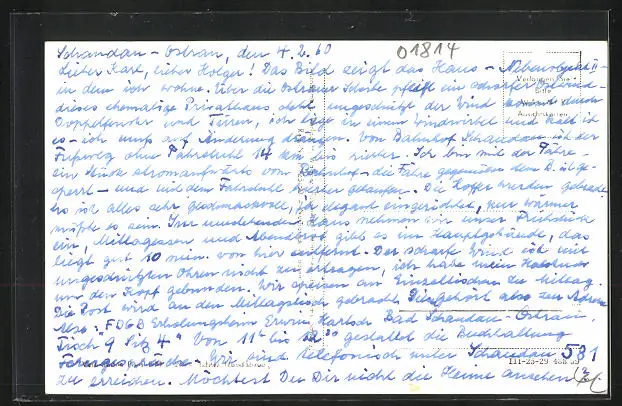 Schandau-Ostrau, den 4.2.60
01814
Lieber Karl, lieber Holger! Das Bild zeigt das Haus - Nebenobjekt II -
in dem ich wohne. Über die Ostrauer Scheibe pfeift ein scharfer Ostwind
dieses ehemalige Privathaus steht ungeschützt der Wind kommt durch
Doppelfenster und Türen, ich liege in einem Windwinkel und kalt ist
es - ich muß auf Änderung drängen. Vom Bahnhof Schandau ist der
Fußweg ohne Fahrstuhl 14 km bis hierher. Ich bin mit der Fähre -
ein Stück stromaufwärts vom Bahnhof - die Fähre gegenüber dem B. ist ge-
sperrt - und mit dem Fahrstuhl hierher gelaufen. Die Koffer werden gebracht
Es ist alles sehr geschmackvoll, ja elegant eingerichtet, nur wärmer
müßte es sein. Im Haus nehmen wir unser Frühstück
ein, Mittagessen und Abendbrot gibt es im Hauptgebäude, das
liegt gut 10 min. von hier entfernt. Der scharfe Wind ist mit
ungeschützten Ohren nicht zu ertragen, ich habe mein Halstuch
um den Kopf gebunden. Wir speisen an Einzeltischen zu Mittag.
Die Post wird an den Mittagstisch gebracht. Das gehört also zur Adresse
Also: "FDGB Erholungsheim Erwin Hartsch Bad Schandau-Ostrau,
Tisch 9 Sitz 4" Von 11 bis 12³⁰ gestattet die Buchhaltung
Ferngespräche. Wir sind telefonisch unter Schandau 581
zu erreichen. Möchtest Du Dir nicht die Heime ansehen?
Verlangen Sie
Bitte
III-23-29 488